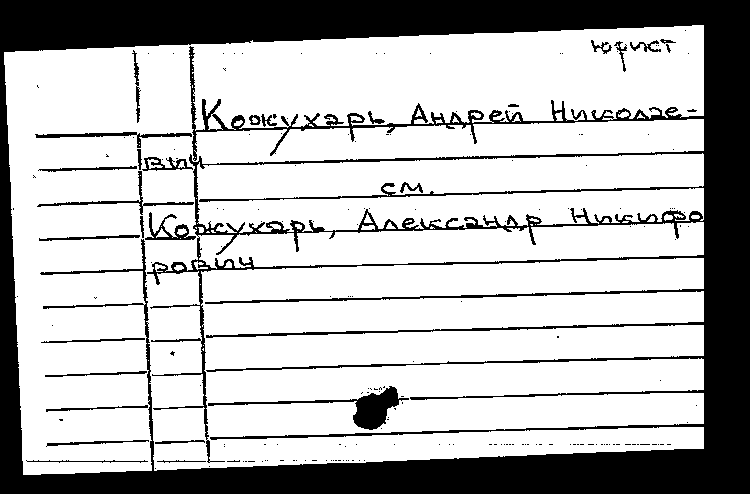 юрист
Кожухарь, Андрей Николае-
вич
см.
Кожухарь, Александр Никифо
рович